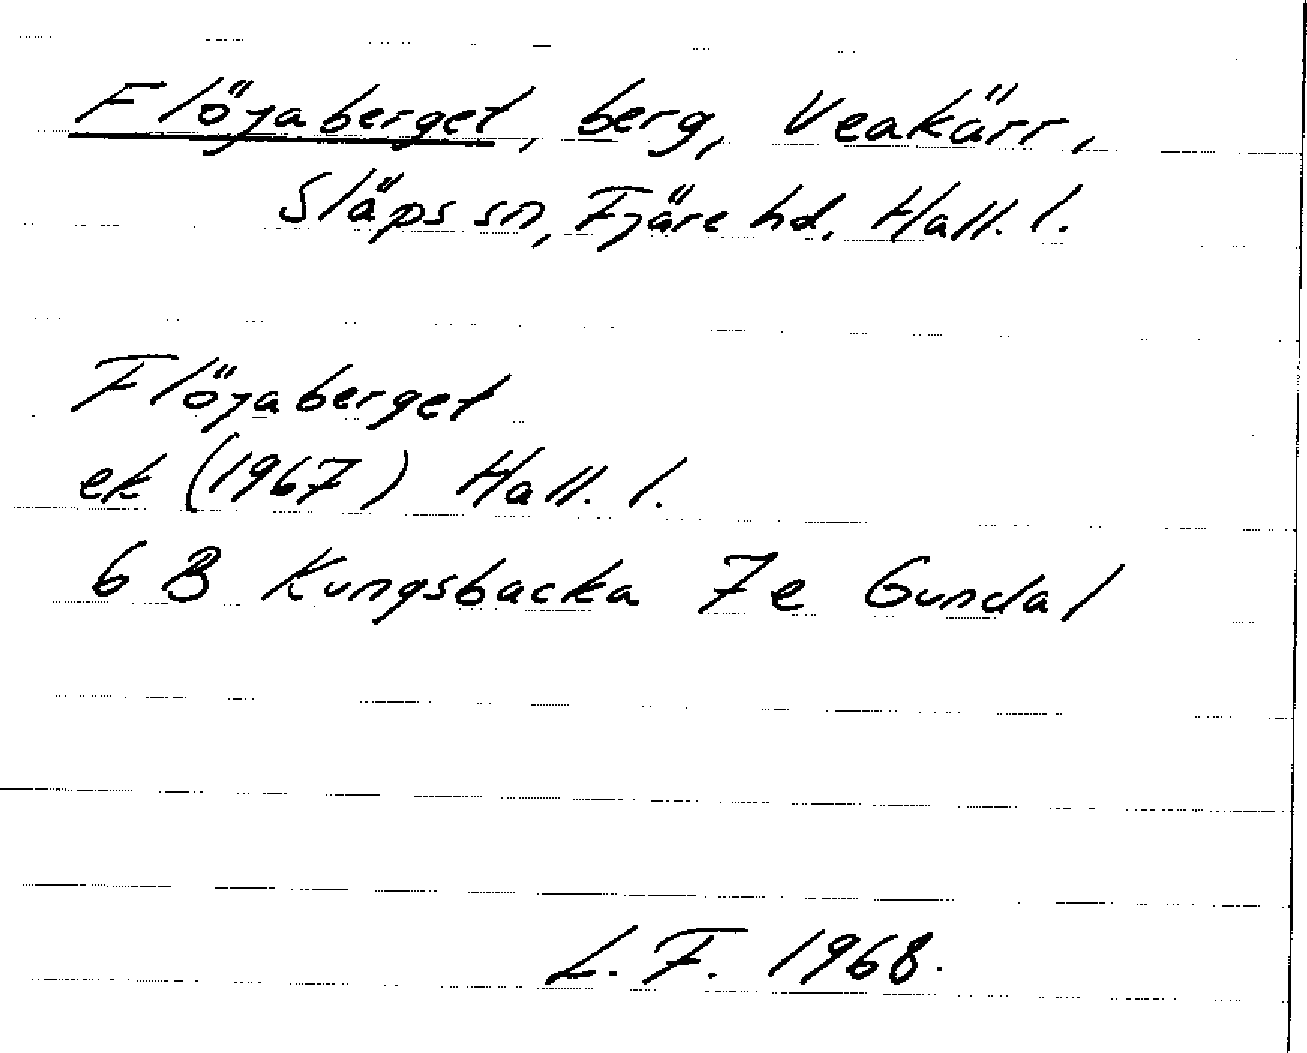 Flöjaberget, berg, Veakärr,
Släps sn, Fjäre hd. Hall. l.
Flöjaberget
ek (1967) Hall. l.
6 B Kungsbacka 7e Gundal
L. F. 1968.